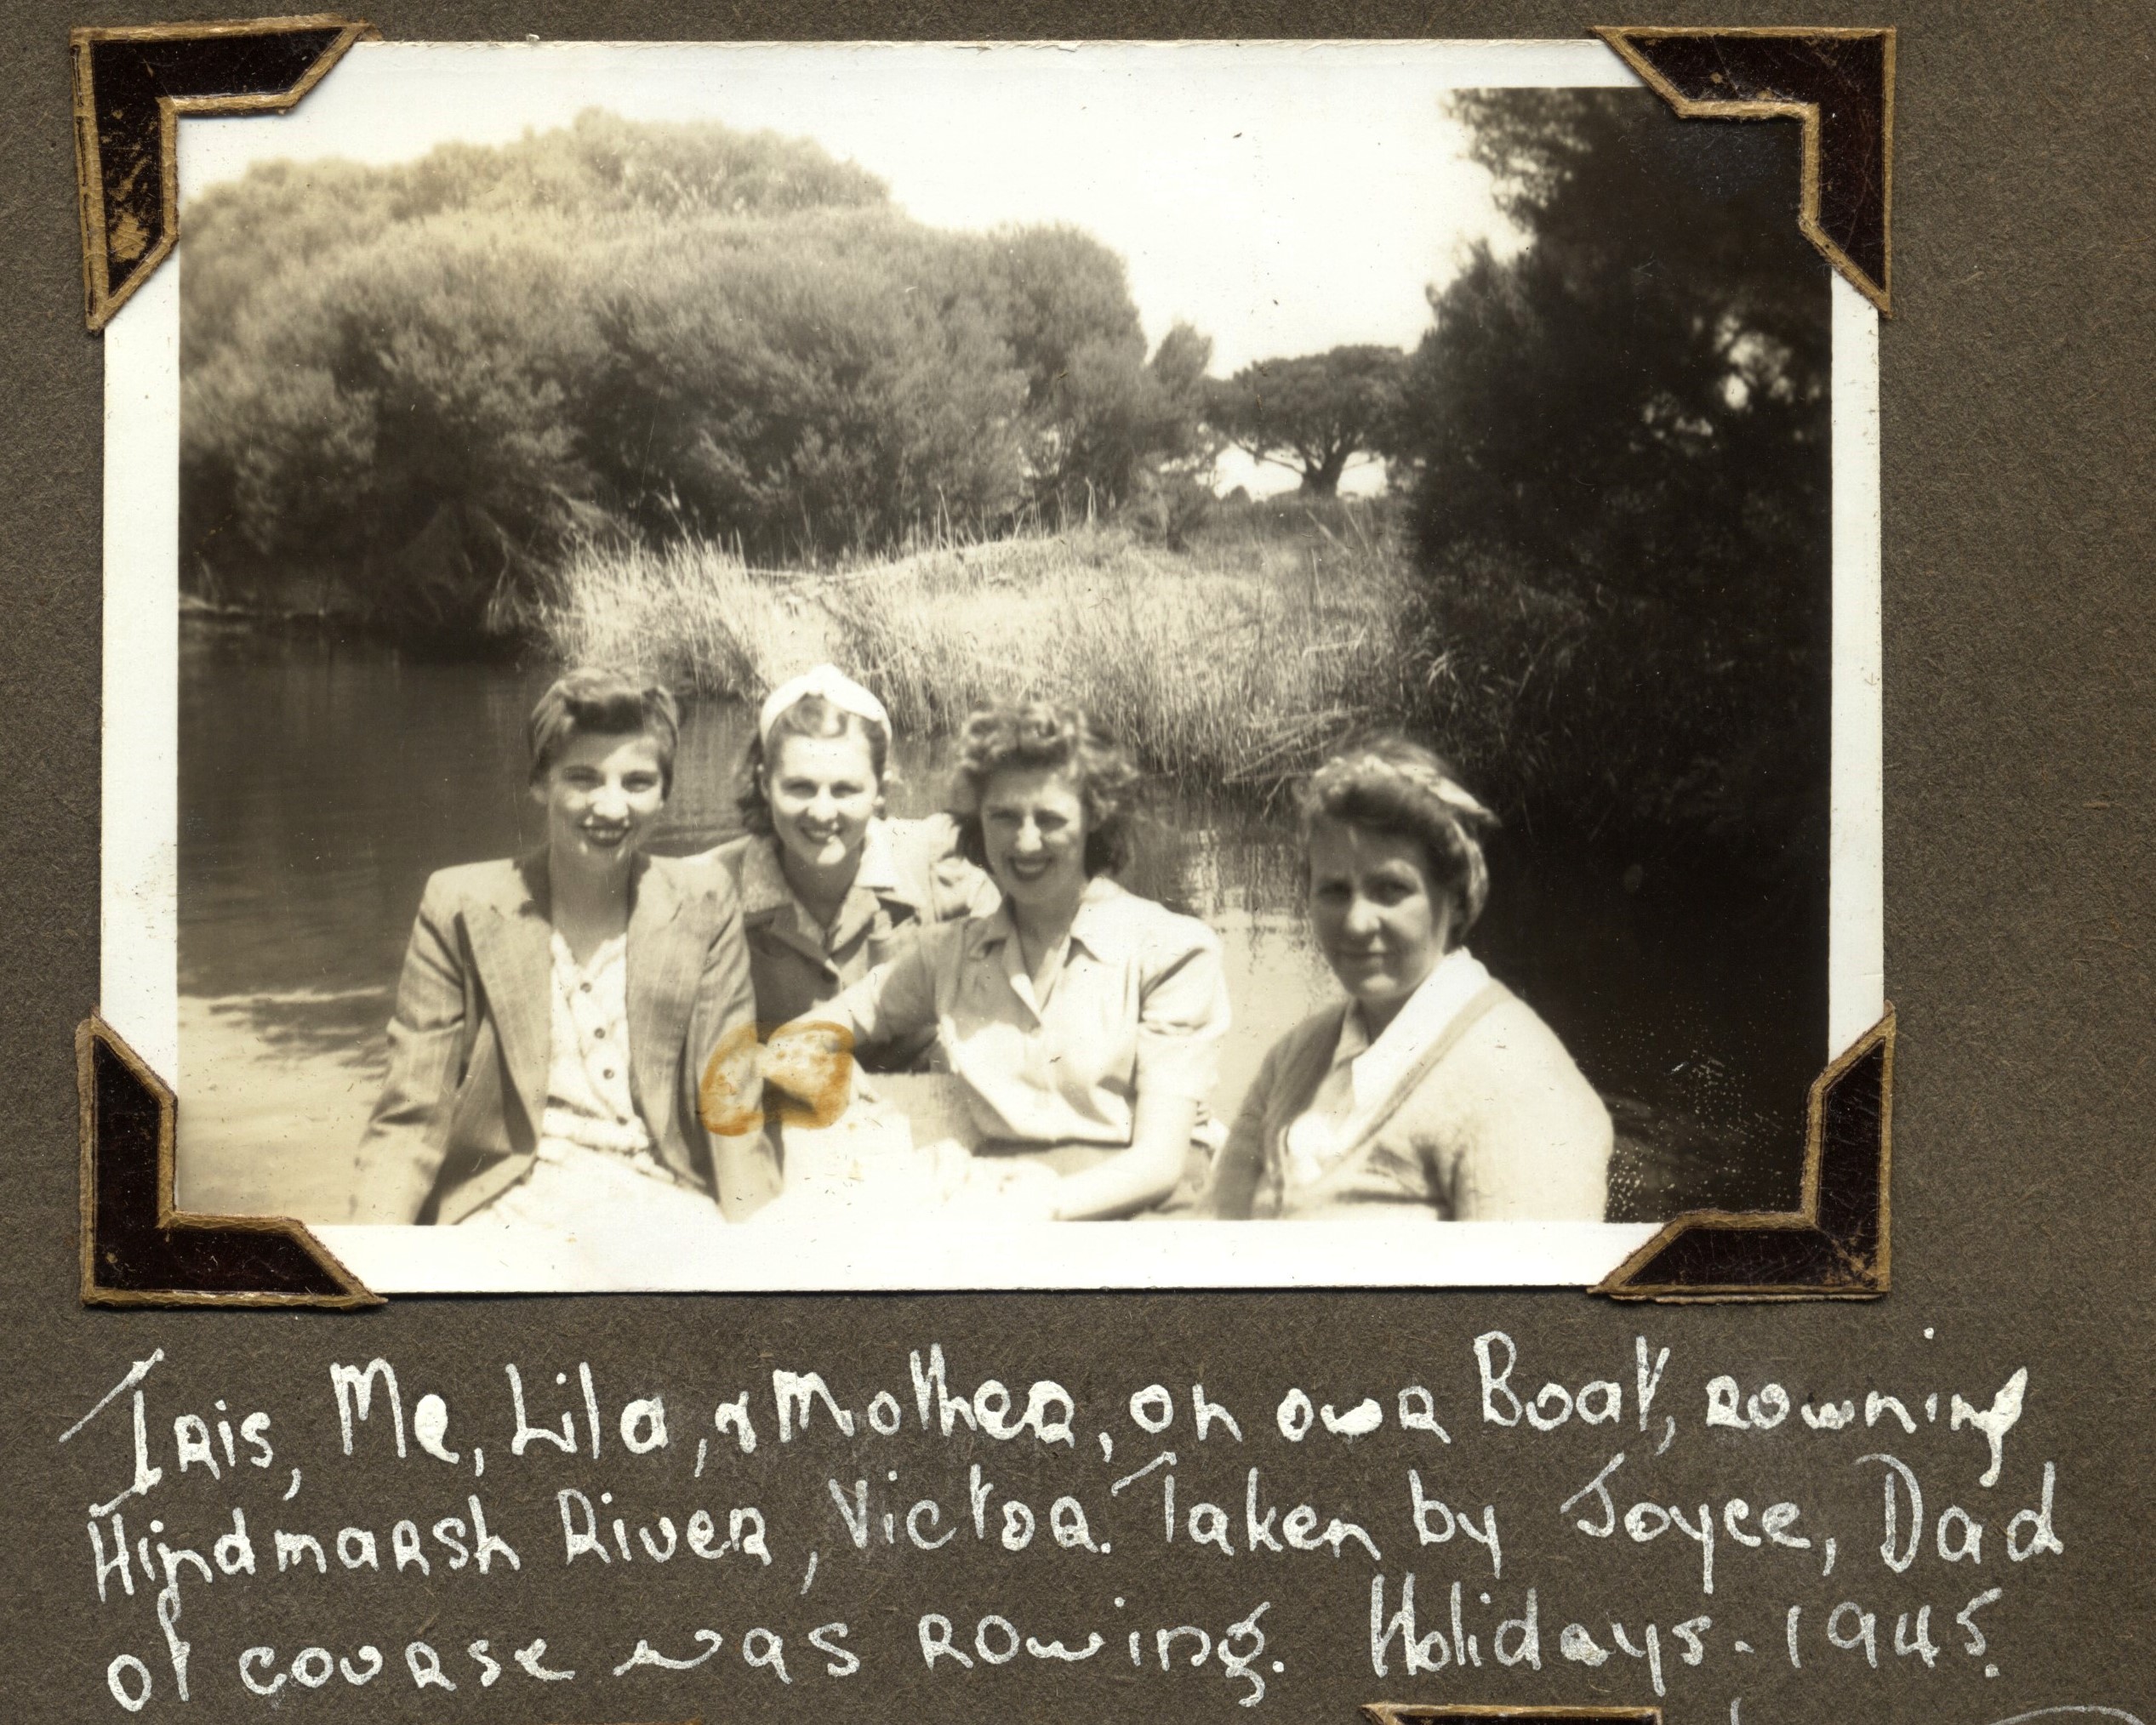 Iris, Me, Lila, & Mother, on our Boat, rowning
Hindmarsh River, Victor. Taken by Joyce, Dad
of course was rowing. Holidays - 1945.